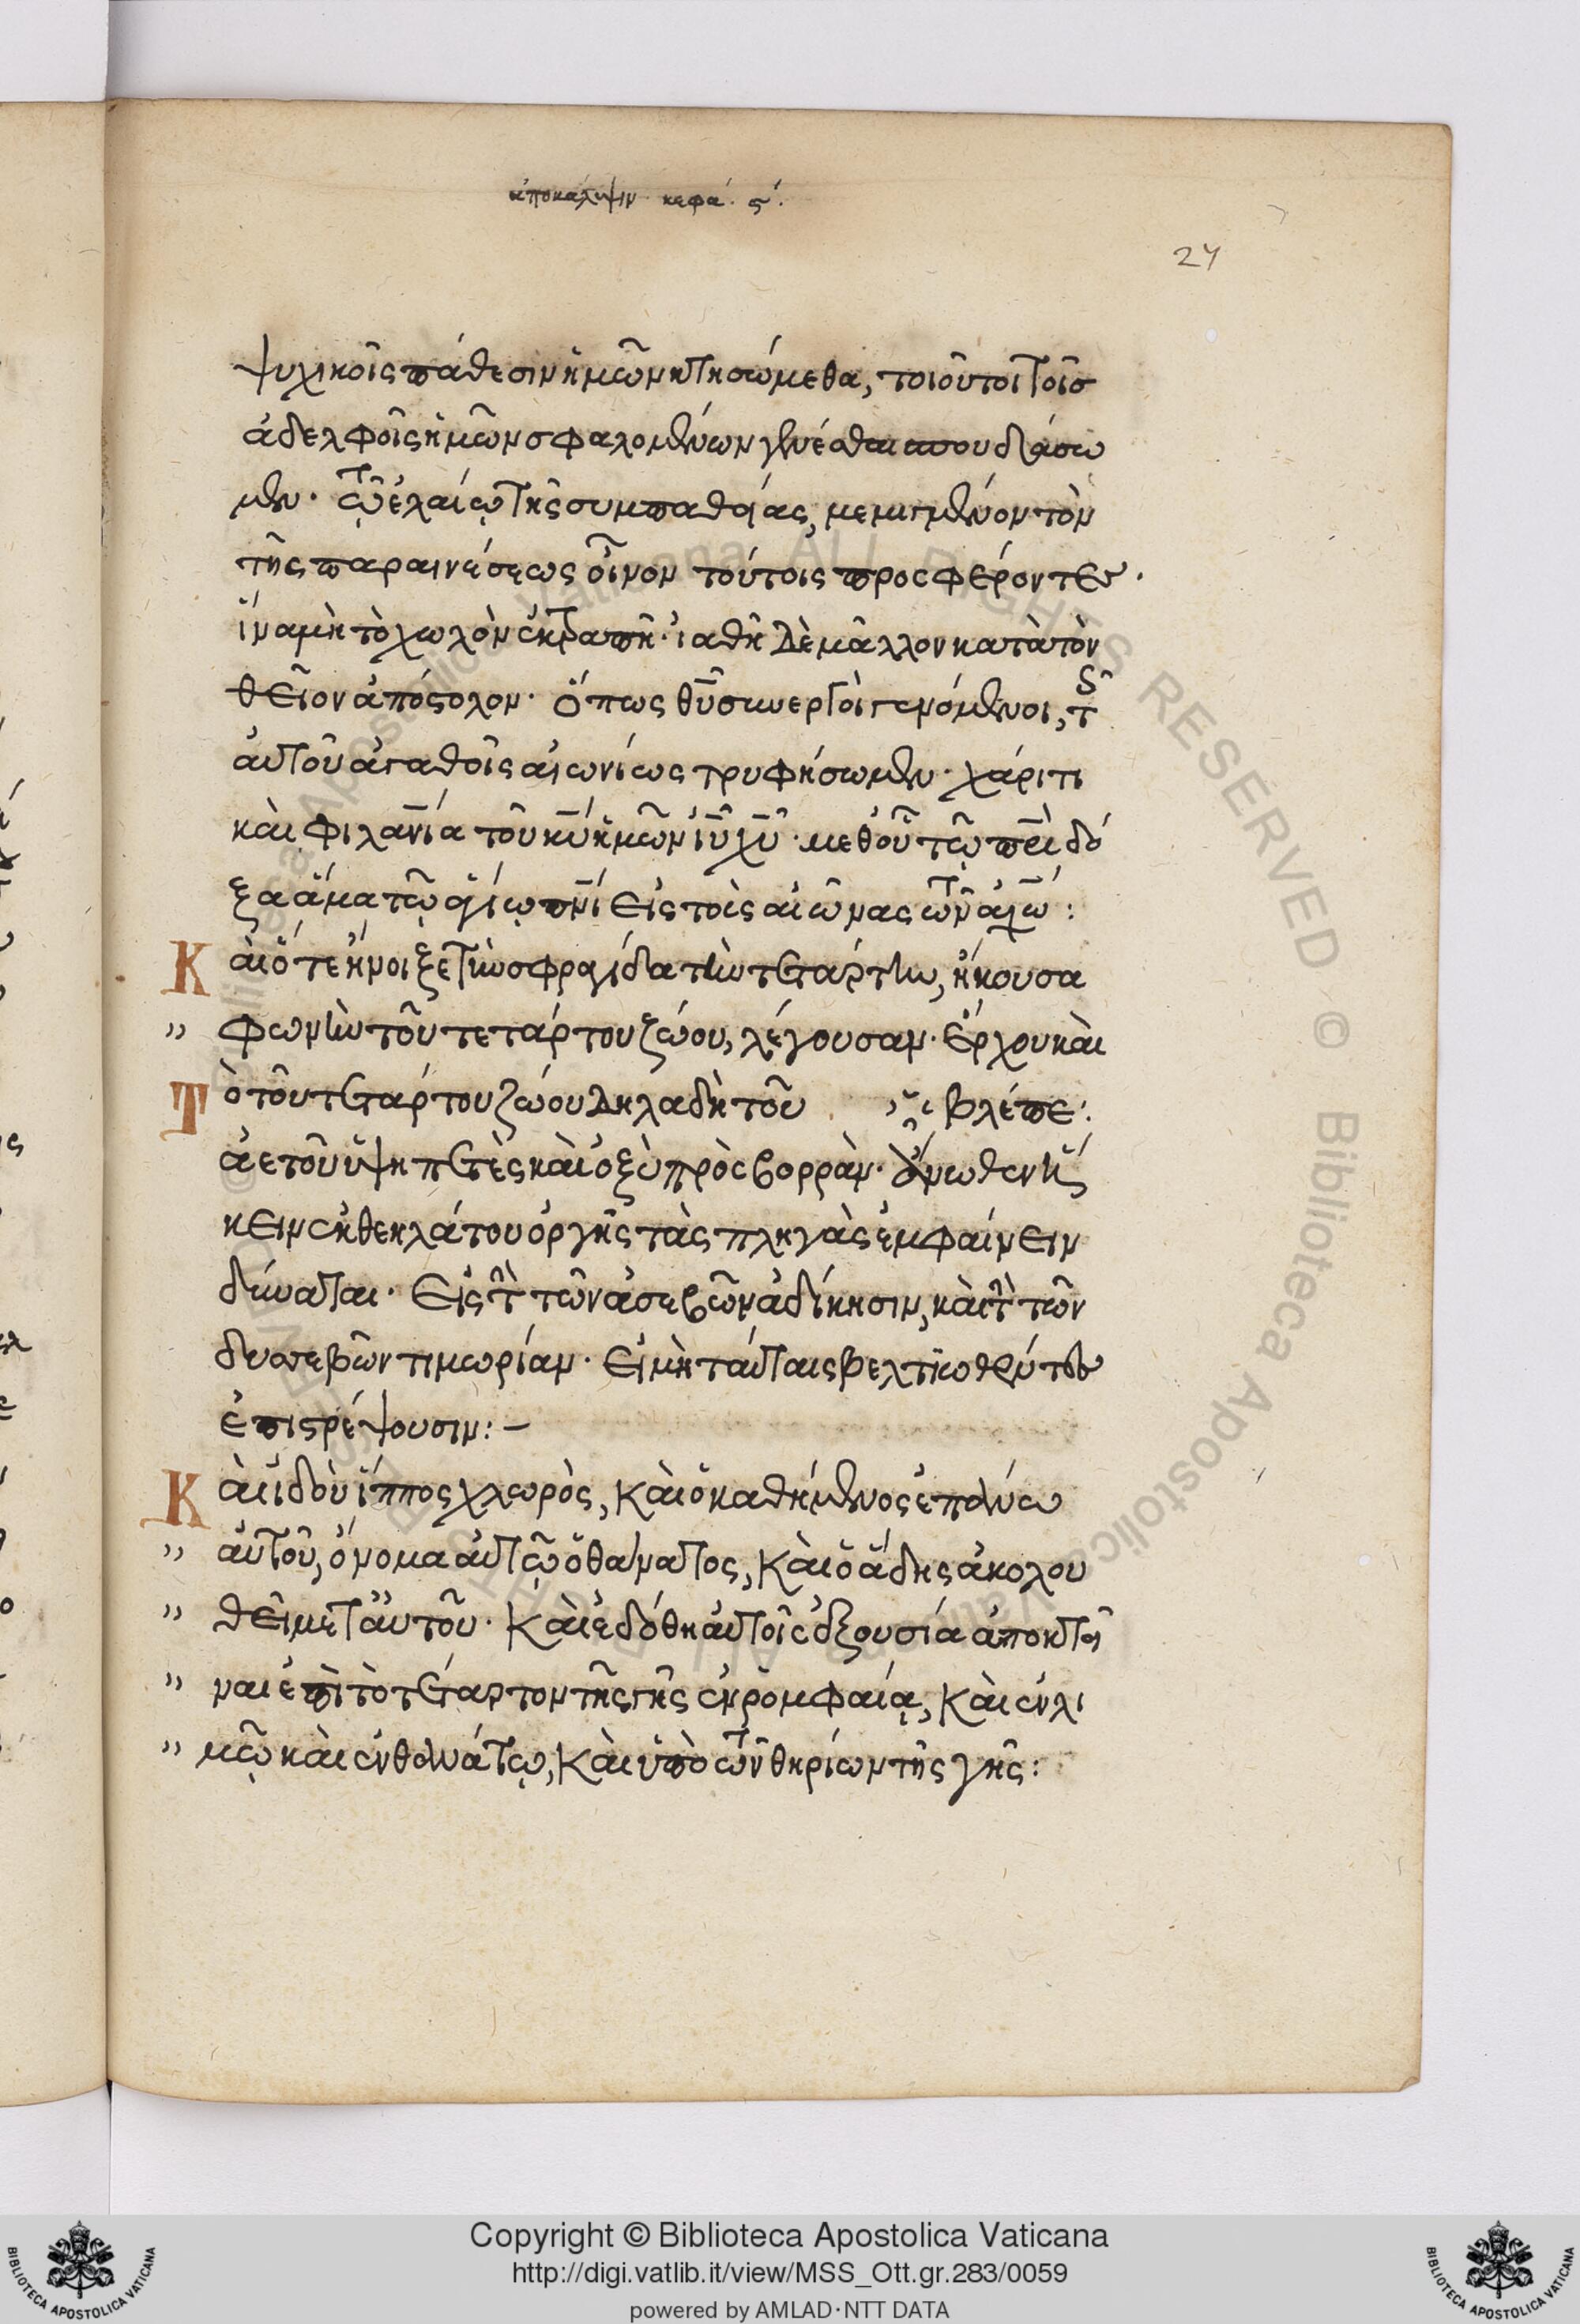 ἀποκάλυψιν κεφά. ϛ΄.
24
ψυχικοῖς πάθεσιν ἡμῶν κτησώμεθα, τοιοῦτοι τοῖσ
ἀδελφοῖς ἡμῶν σφαλομένων γενέσθαι σπουδάσω
μεν. τῷ ἐλαίῳ τῆς συμπαθείας, μεμιγμένον τὸν
τῆς παραινέσεως οἶνον τούτοις προσφέροντες.
ἵνα μὴ τὸ χωλὸν ἐκτραπῆ. ἰαθῆ δὲ μᾶλλον κατὰ τὸν
θεῖον ἀπόστολον. ὅπως θυ συνεργοὶ γενόμενοι, τ
αὐτοῦ ἀγαθοῖς αἰωνίως τρυφήσωμεν. χάριτι
καὶ φιλανία τοῦ κυ ἡμῶν ιυ χυ. μεθοῦ τῷ πρὶ δό
ξα ἅμα τῷ ἁγίῳ πνι εἰς τοὺς αἰῶνας τῶν αἰώ:
Καὶ ὅτε ἤνοιξε τὴν σφραγίδα τὴν τετάρτην, ἤκουσα
" φωνὴν τοῦ τετάρτου ζώου, λέγουσαν. ἔρχου καὶ
βλέπε:
Τὸ τοῦ τετάρτου ζώου δηλαδὴ τοῦ
ἀετοῦ ὑψηπετὲς καὶ ὀξὺ πρὸς βορρὰν. ἄνωθεν ἥ
κειν ἐκ θεηλάτου ὀργῆς τὰς πληγὰς ἐμφαίνειν
δύναται. εἰς τ τῶν ἀσεβῶν ἀδίκησιν, καὶ τ τῶν
δυσσεβῶν τιμωρίαν. εἰ μὴ ταύταις βελτιωθέντες
ἐπιστρέψουσιν:—
Καὶ ἰδοὺ ἵππος χλωρὸς, καὶ ὁ καθήμενος ἐπάνω
" αὐτοῦ, ὄνομα αὐτῷ ὁ θάνατος, καὶ ὁ ἅδης ἀκολου
" θεῖ μετ αὐτοῦ. καὶ ἐδόθη αὐτοῖς ἐξουσία ἀποκτεῖ
" ναι ἐπὶ τὸ τέταρτον τῆς γῆς ἐν ῥομφαίᾳ, καὶ ἐν λι
" μῷ καὶ ἐν θανάτῳ, καὶ ὑπὸ τῶν θηρίων τῆς γῆς:
Copyright © Biblioteca Apostolica Vaticana
http://digi.vatlib.it/view/MSS_Ott.gr.283/0059
powered by AMLAD·NTT DATA
BIBLIOTECA APOSTOLICA VATICANA
BIBLIOTECA APOSTOLICA VATICANA